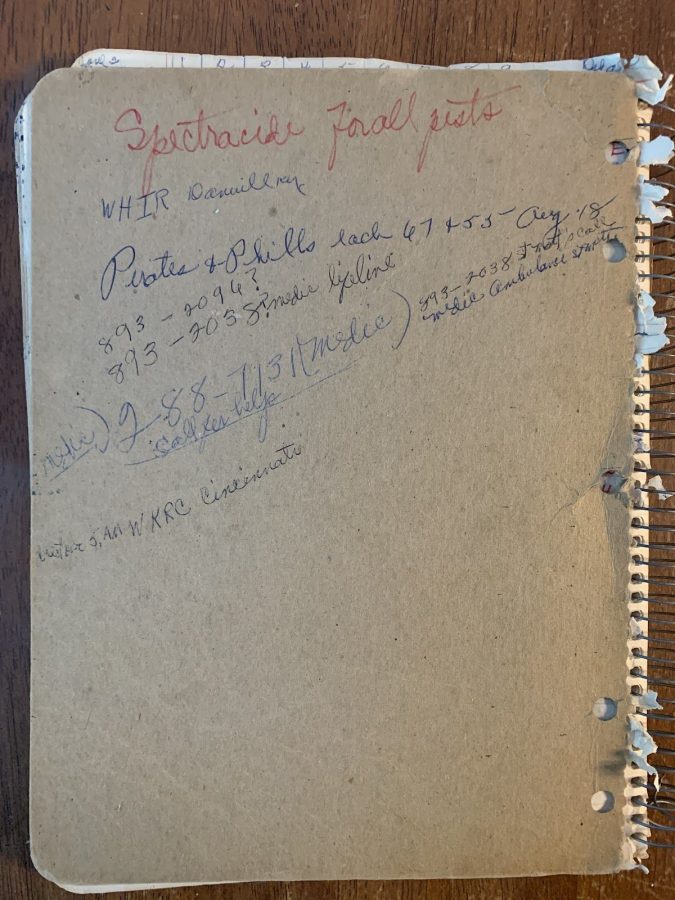 Spectracide For all pests
WHIR Danville Ky
Pirates & Phills each 67 & 55 Aug. 18
893-2094?
893-2038? medic lifeline
893-2038 I not, call
medic Ambulance
medic) 288-7131 (medic)
Call for help
5, AM WKRC Cincinnati